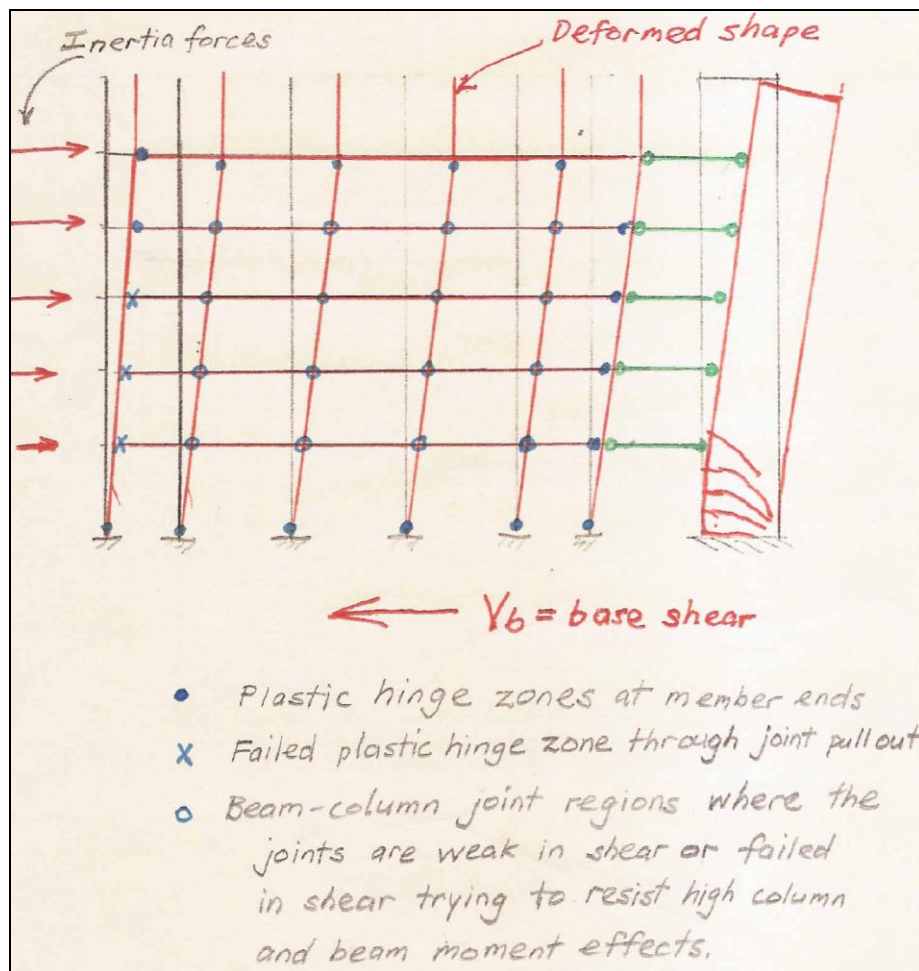 Inertia forces
Deformed shape
Vb = base shear
• Plastic hinge zones at member ends
x Failed plastic hinge zone through joint pull out
o Beam-column joint regions where the
joints are weak in shear or failed
in shear trying to resist high column
and beam moment effects.